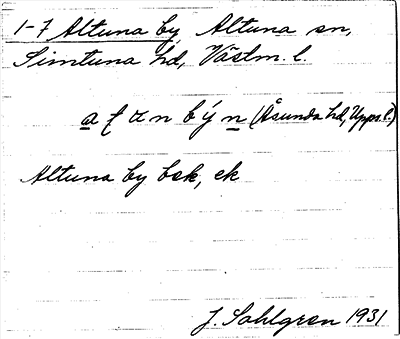 1-7 Altuna by, Altuna sn,
Simtuna hd, Västm. l.
(Åsunda hd, Upps. l.)
Altuna by bsk, ek
J. Sahlgren 1931